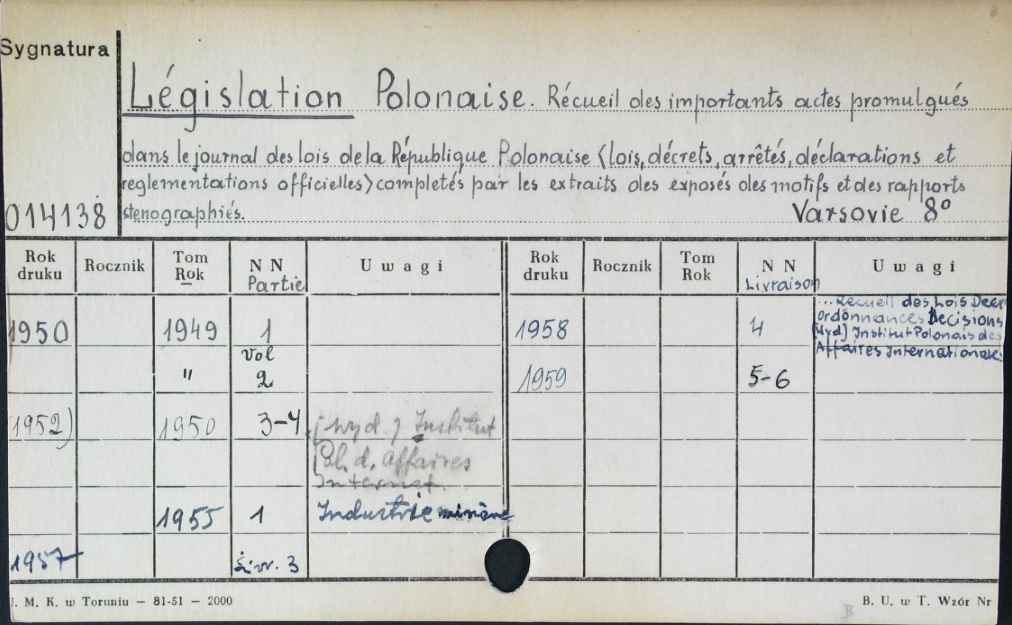 Sygnatura
Législation Polonaise. Récueil des importants actes promulgués
dans le journal des lois de la République Polonaise <lois, décrets, arrêtés, déclarations et
reglementations officielles> completés par les extraits des exposés des motifs et des rapports
014138 stenographiés. Varsovie 8°
Rok druku Rocznik Tom Rok N N Partie Uwagi Rok druku Rocznik Tom Rok N N Livraison Uwagi
1950 1949 1 1958 4 ...Recueil des Lois Decr
Ordonnances Decisions
(Wyd) Institut Polonais des
Affaires Internationale.
vol
" 2 1959 5-6
1952) 1950 3-4 (wyd.) Institut
Pol. d. Affaires
Internat.
1955 1 Industrie minière
1957 Livr. 3
J. M. K. w Toruniu — 81-51 — 2000 B. U. w T. Wzór Nr
B